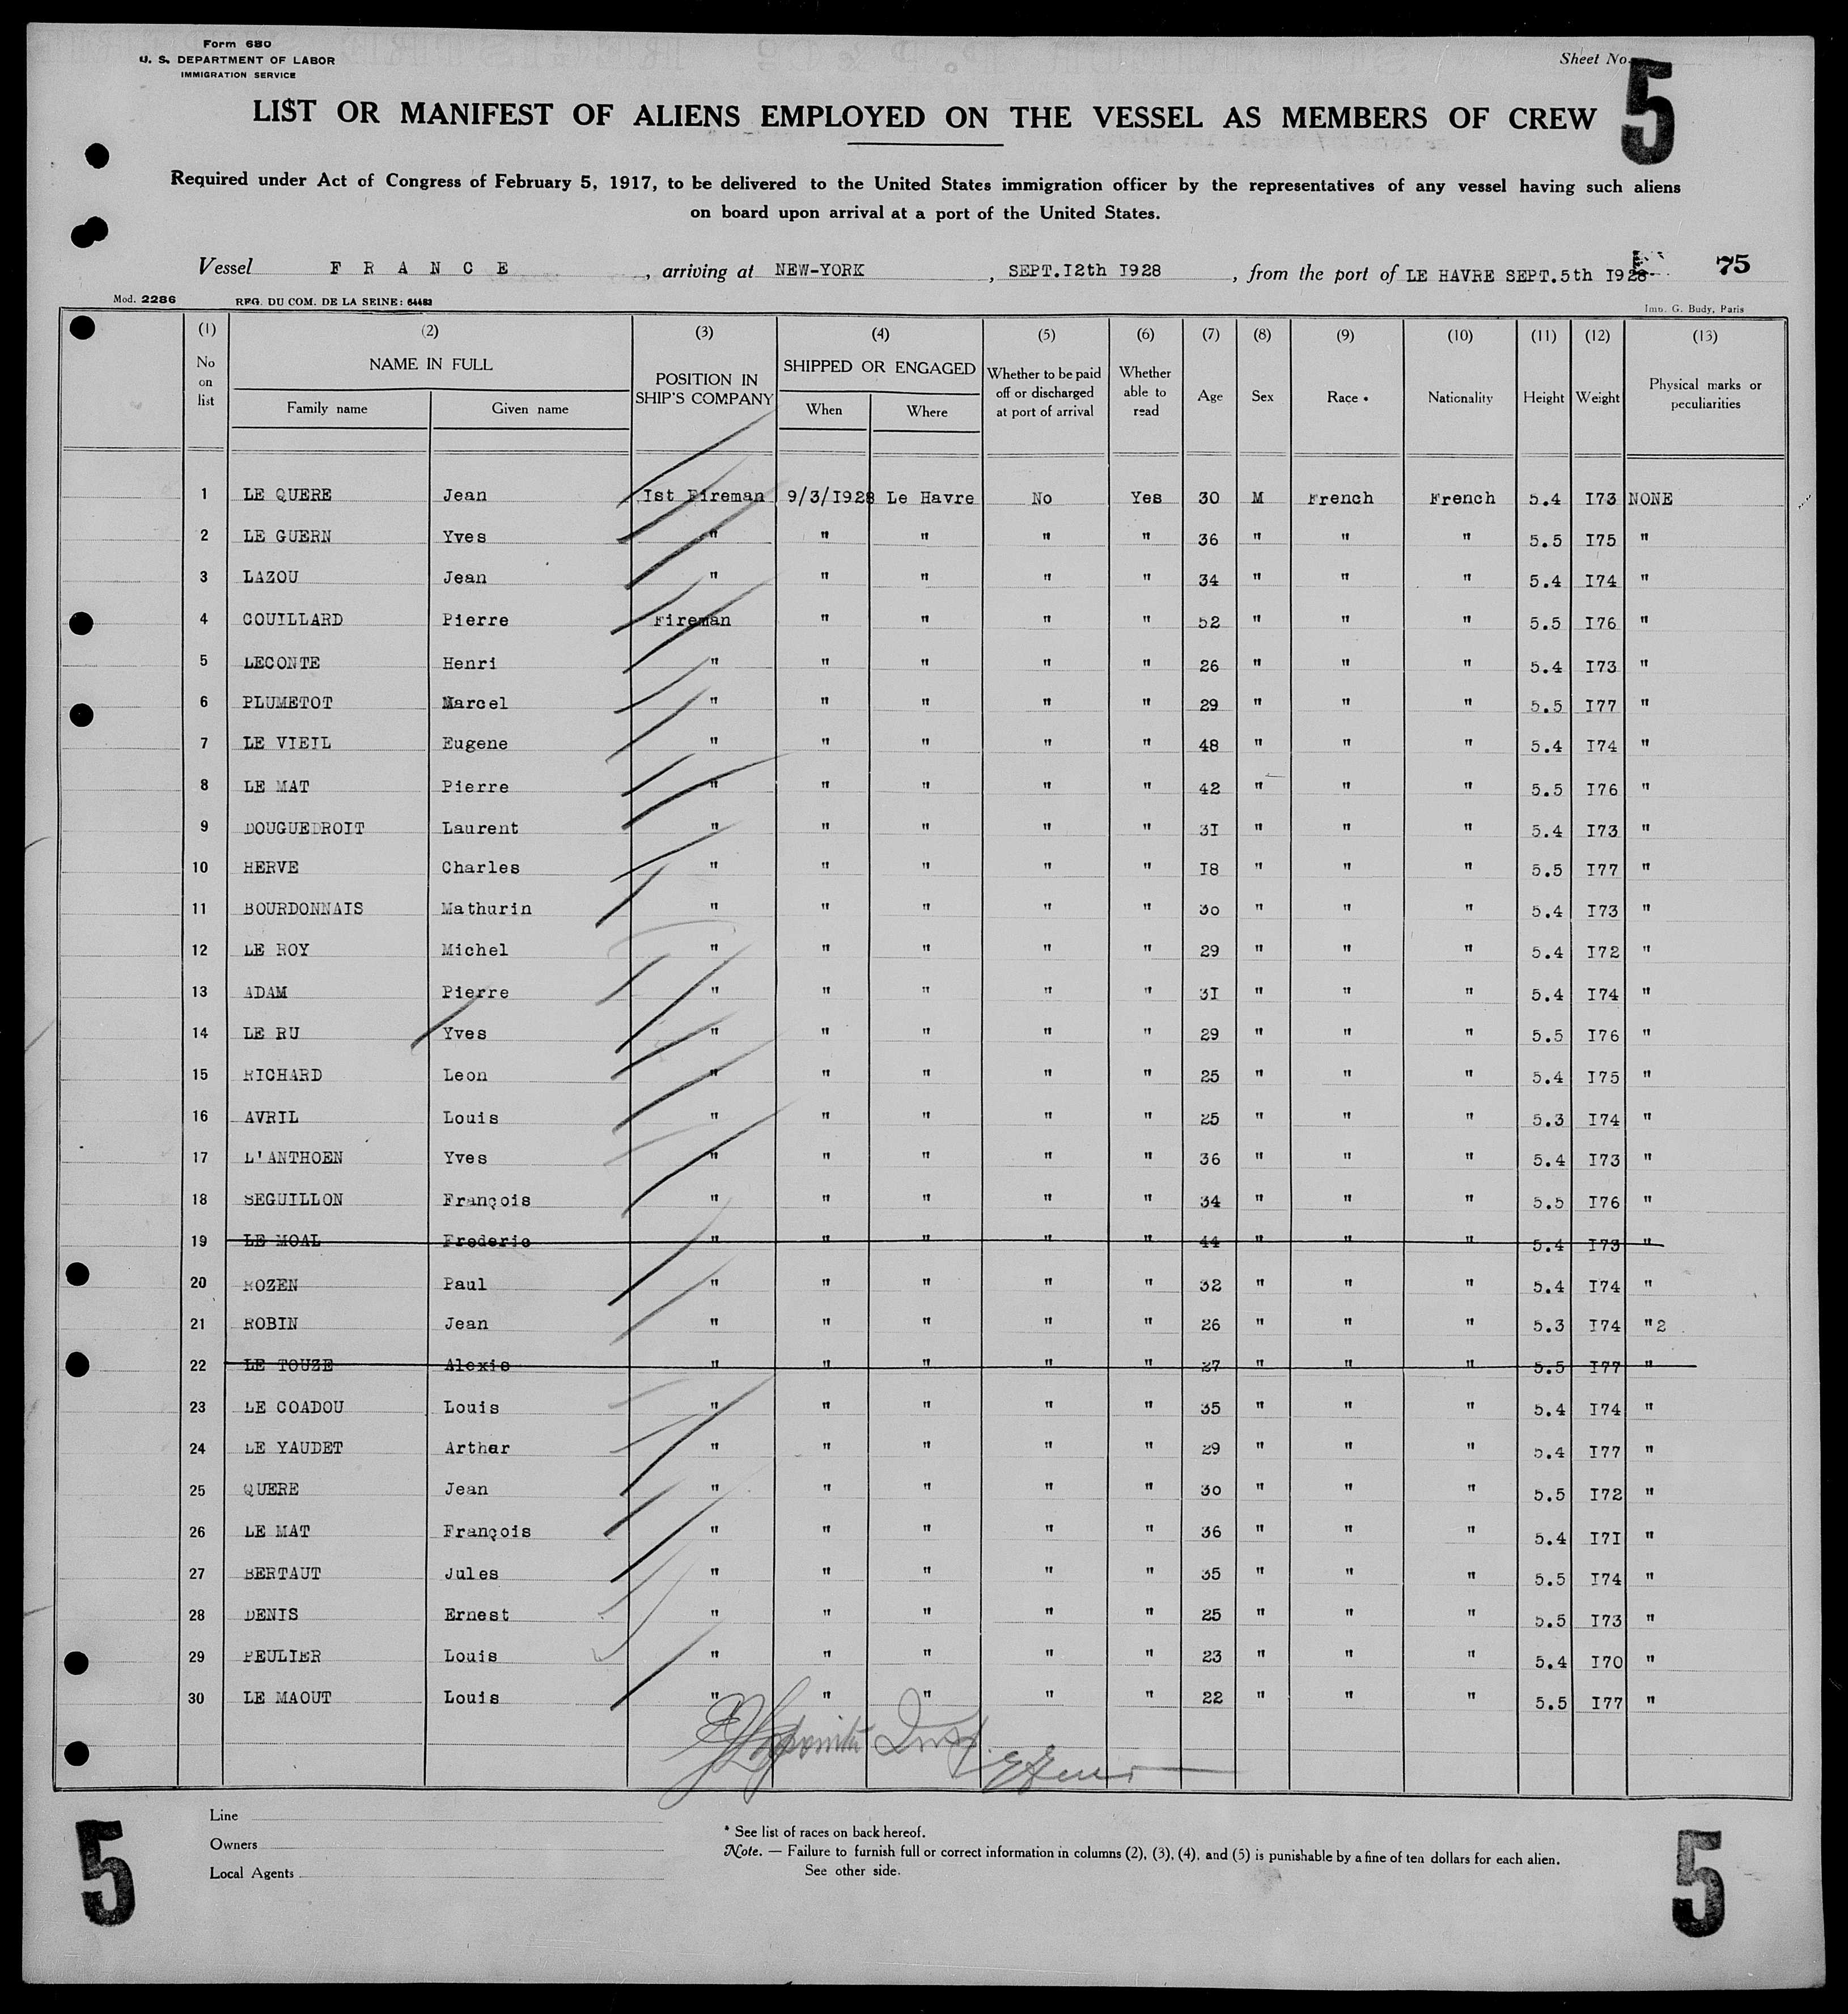 Form 680
U. S. DEPARTMENT OF LABOR
IMMIGRATION SERVICE
Sheet No. 5
LIST OR MANIFEST OF ALIENS EMPLOYED ON THE VESSEL AS MEMBERS OF CREW
Required under Act of Congress of February 5, 1917, to be delivered to the United States immigration officer by the representatives of any vessel having such aliens
on board upon arrival at a port of the United States.
Vessel F R A N C E , arriving at NEW-YORK , SEPT.I2th I928 , from the port of LE HAVRE SEPT.5th I928 75
Mod. 2286 REG. DU COM. DE LA SEINE: 64483 Imp. G. Budy, Paris
(1) (2) (3) (4) (5) (6) (7) (8) (9) (10) (11) (12) (13)
No on list NAME IN FULL Family name Given name POSITION IN SHIP'S COMPANY SHIPPED OR ENGAGED When Where Whether to be paid off or discharged at port of arrival Whether able to read Age Sex Race * Nationality Height Weight Physical marks or peculiarities
1 LE QUERE Jean Ist Fireman 9/3/I928 Le Havre No Yes 30 M French French 5.4 I73 NONE
2 LE GUERN Yves " " " " " 36 " " " 5.5 I75 "
3 LAZOU Jean " " " " " 34 " " " 5.4 I74 "
4 COUILLARD Pierre Fireman " " " " 52 " " " 5.5 I76 "
5 LECONTE Henri " " " " " 26 " " " 5.4 I73 "
6 PLUMETOT Marcel " " " " " 29 " " " 5.5 I77 "
7 LE VIEIL Eugene " " " " " 48 " " " 5.4 I74 "
8 LE MAT Pierre " " " " " 42 " " " 5.5 I76 "
9 DOUGUEDROIT Laurent " " " " " 3I " " " 5.4 I73 "
10 HERVE Charles " " " " " I8 " " " 5.5 I77 "
11 BOURDONNAIS Mathurin " " " " " 30 " " " 5.4 I73 "
12 LE ROY Michel " " " " " 29 " " " 5.4 I72 "
13 ADAM Pierre " " " " " 3I " " " 5.4 I74 "
14 LE RU Yves " " " " " 29 " " " 5.5 I76 "
15 RICHARD Leon " " " " " 25 " " " 5.4 I75 "
16 AVRIL Louis " " " " " 25 " " " 5.3 I74 "
17 L'ANTHOEN Yves " " " " " 36 " " " 5.4 I73 "
18 SEGUILLON François " " " " " 34 " " " 5.5 I76 "
19 LE MOAL Frederic " " " " " 44 " " " 5.4 I73 "
20 ROZEN Paul " " " " " 32 " " " 5.4 I74 "
21 ROBIN Jean " " " " " 26 " " " 5.3 I74 "2
22 LE TOUZE Alexis " " " " " 27 " " " 5.5 I77 "
23 LE COADOU Louis " " " " " 35 " " " 5.4 I74 "
24 LE YAUDET Arthar " " " " " 29 " " " 5.4 I77 "
25 QUERE Jean " " " " " 30 " " " 5.5 I72 "
26 LE MAT François " " " " " 36 " " " 5.4 I7I "
27 BERTAUT Jules " " " " " 35 " " " 5.5 I74 "
28 DENIS Ernest " " " " " 25 " " " 5.5 I73 "
29 PEULIER Louis " " " " " 23 " " " 5.4 I70 "
30 LE MAOUT Louis " " " " " 22 " " " 5.5 I77 "
Line
Owners
Local Agents
* See list of races on back hereof.
Note. — Failure to furnish full or correct information in columns (2), (3), (4), and (5) is punishable by a fine of ten dollars for each alien.
See other side.
5 5